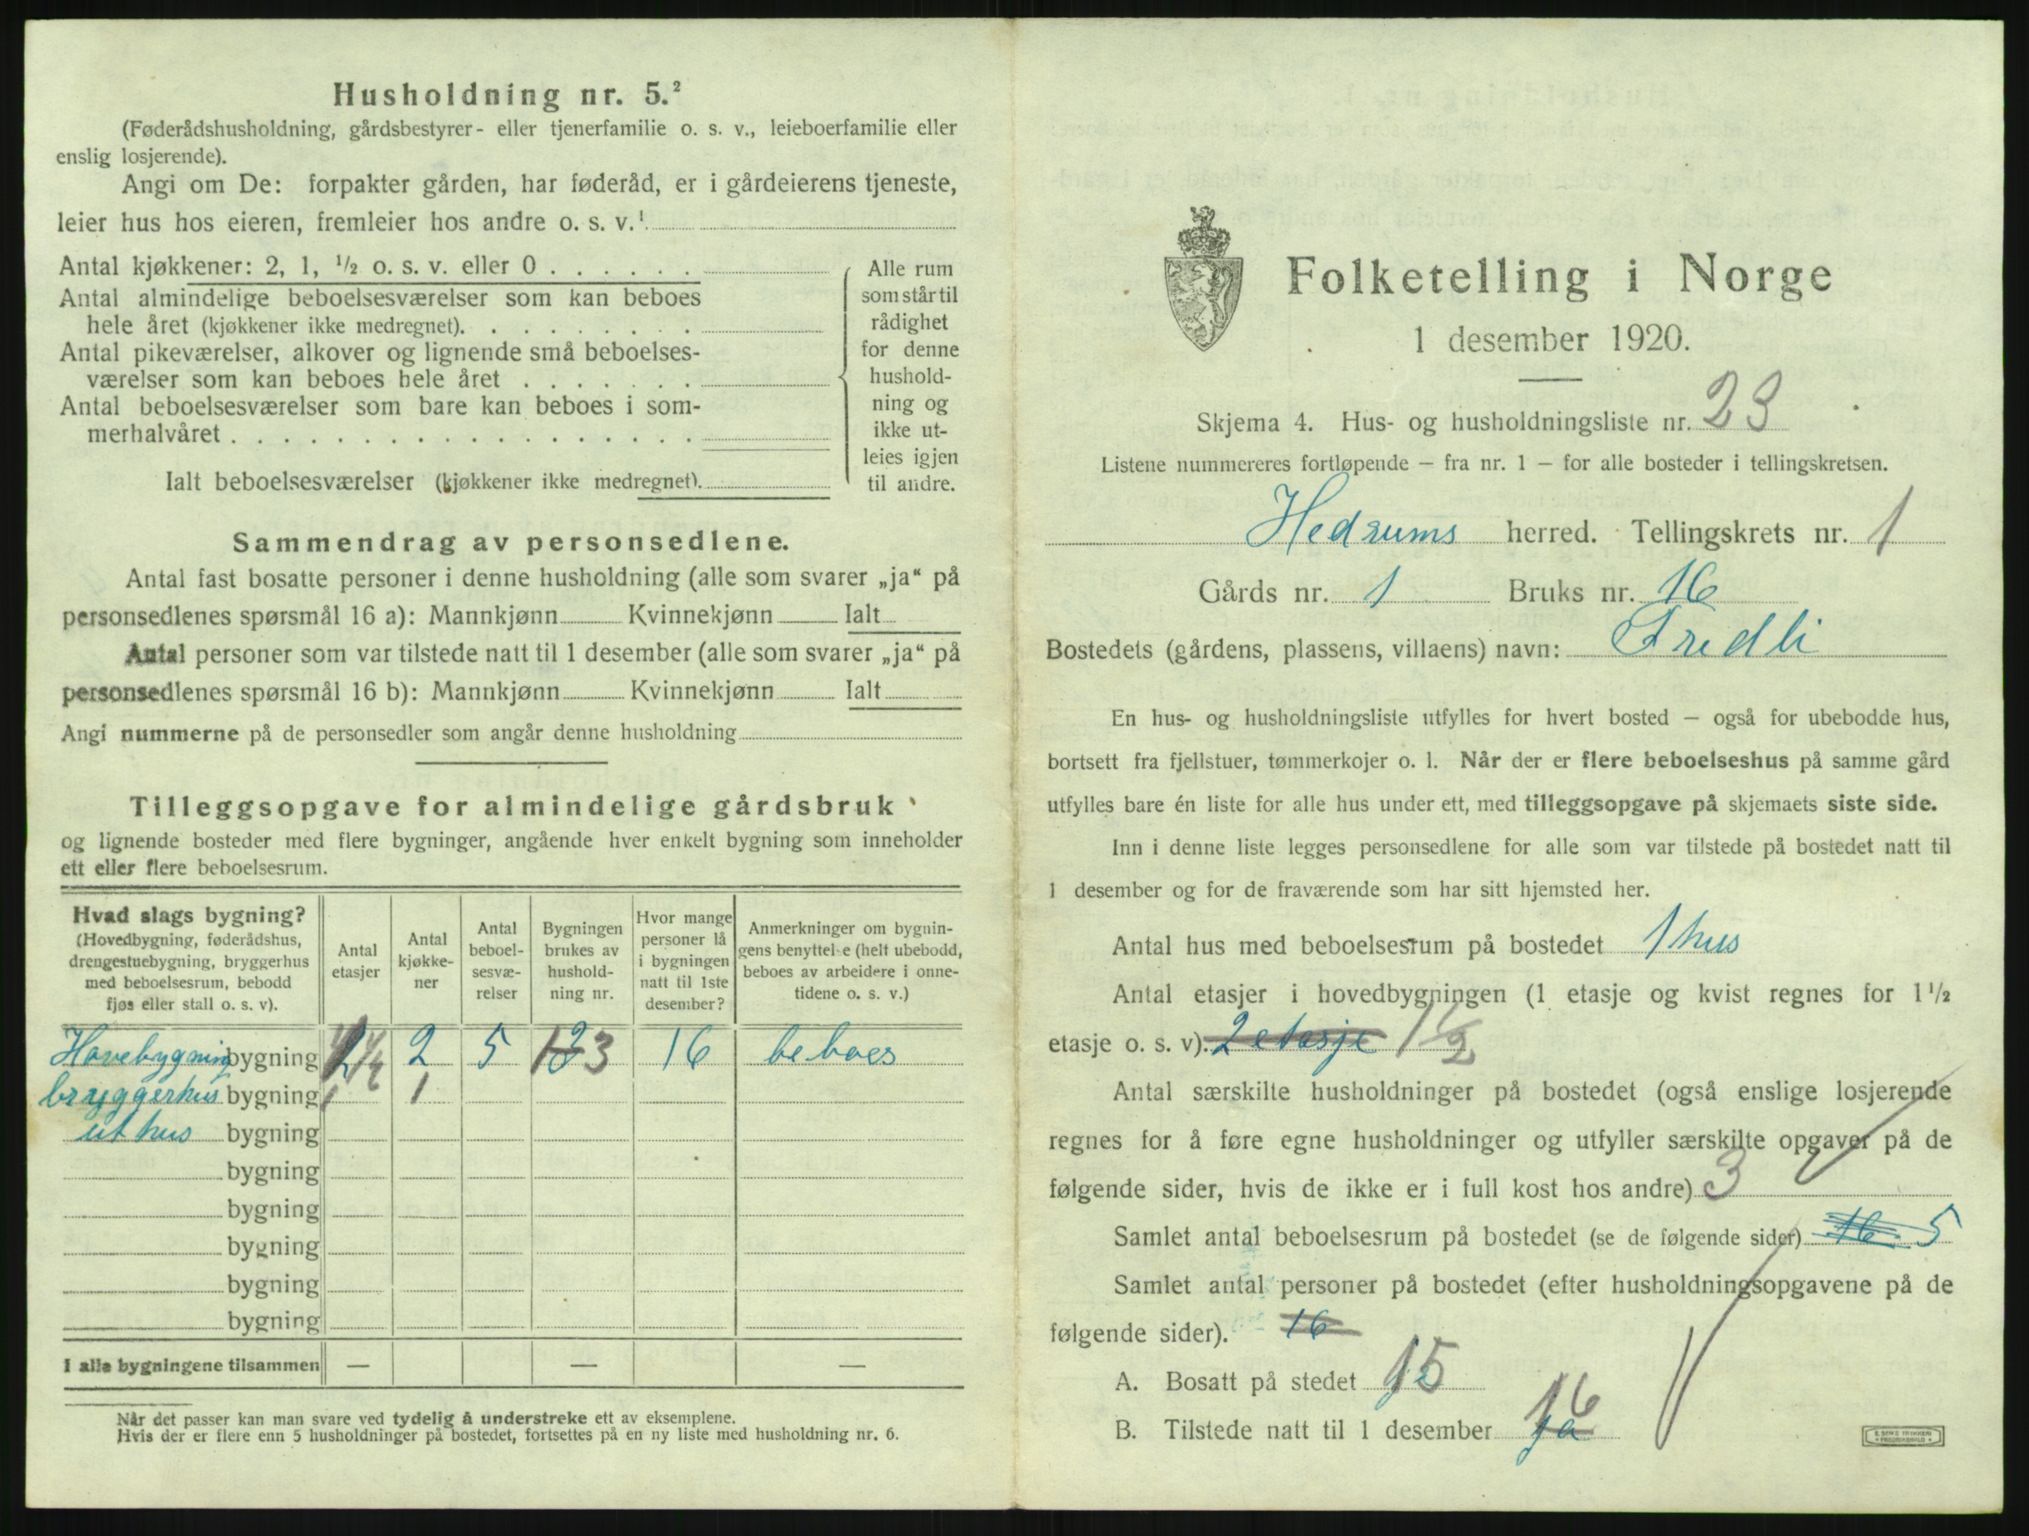 Husholdning nr. 5.²
(Føderådshusholdning, gårdsbestyrer- eller tjenerfamilie o. s. v., leieboerfamilie eller
enslig losjerende).
Angi om De: forpakter gården, har føderåd, er i gårdeierens tjeneste,
leier hus hos eieren, fremleier hos andre o. s. v.¹
Antal kjøkkener: 2, 1, ½ o. s. v. eller 0 . . . . . .
Antal almindelige beboelsesværelser som kan beboes
hele året (kjøkkener ikke medregnet). . . . . . . . .
Antal pikeværelser, alkover og lignende små beboelses-
værelser som kan beboes hele året . . . . . . .
Antal beboelsesværelser som bare kan beboes i som-
merhalvåret . . . . . . . . . . . . . . . . . .
Ialt beboelsesværelser (kjøkkener ikke medregnet).
Alle rum
som står til
rådighet
for denne
hushold-
ning og
ikke ut-
leies igjen
til andre.
Sammendrag av personsedlene.
Antal fast bosatte personer i denne husholdning (alle som svarer „ja“ på
personsedlenes spørsmål 16 a): Mannkjønn Kvinnekjønn Ialt
Antal personer som var tilstede natt til 1 desember (alle som svarer „ja“ på
personsedlenes spørsmål 16 b): Mannkjønn Kvinnekjønn Ialt
Angi nummerne på de personsedler som angår denne husholdning
Tilleggsopgave for almindelige gårdsbruk
og lignende bosteder med flere bygninger, angående hver enkelt bygning som inneholder
ett eller flere beboelsesrum.
Hvad slags bygning?
(Hovedbygning, føderådshus,
drengestuebygning, bryggerhus
med beboelsesrum, bebodd
fjøs eller stall o. s. v).
Antal
etasjer
Antal
kjøkke-
ner
Antal
beboel-
sesvæ-
relser
Bygningen
brukes av
hushold-
ning nr.
Hvor mange
personer lå
i bygningen
natt til 1ste
desember?
Anmerkninger om bygnin-
gens benyttelse (helt ubebodd,
beboes av arbeidere i onne-
tidene o. s. v.)
Hovebygning bygning 1½ 2 5 123 16 beboes
bryggerhus bygning 1 1
uthus bygning
bygning
bygning
bygning
bygning
bygning
I alle bygningene tilsammen — — —
Når det passer kan man svare ved tydelig å understreke ett av eksemplene.
Hvis der er flere enn 5 husholdninger på bostedet, fortsettes på en ny liste med husholdning nr. 6.
Folketelling i Norge
1 desember 1920.
Skjema 4. Hus- og husholdningsliste nr. 23
Listene nummereres fortløpende — fra nr. 1 — for alle bosteder i tellingskretsen.
Hedrums herred. Tellingskrets nr. 1
Gårds nr. 1 Bruks nr. 16
Bostedets (gårdens, plassens, villaens) navn: Fredli
En hus- og husholdningsliste utfylles for hvert bosted — også for ubebodde hus,
bortsett fra fjellstuer, tømmerkojer o. l. Når der er flere beboelseshus på samme gård
utfylles bare én liste for alle hus under ett, med tilleggsopgave på skjemaets siste side.
Inn i denne liste legges personsedlene for alle som var tilstede på bostedet natt til
1 desember og for de fraværende som har sitt hjemsted her.
Antal hus med beboelsesrum på bostedet 1 hus
Antal etasjer i hovedbygningen (1 etasje og kvist regnes for 1½
etasje o. s. v). 2 etasje 1½
Antal særskilte husholdninger på bostedet (også enslige losjerende
regnes for å føre egne husholdninger og utfyller særskilte opgaver på de
følgende sider, hvis de ikke er i full kost hos andre) 3
Samlet antal beboelsesrum på bostedet (se de følgende sider) 16 5
Samlet antal personer på bostedet (efter husholdningsopgavene på de
følgende sider). 16
A. Bosatt på stedet 15
B. Tilstede natt til 1 desember ja 16